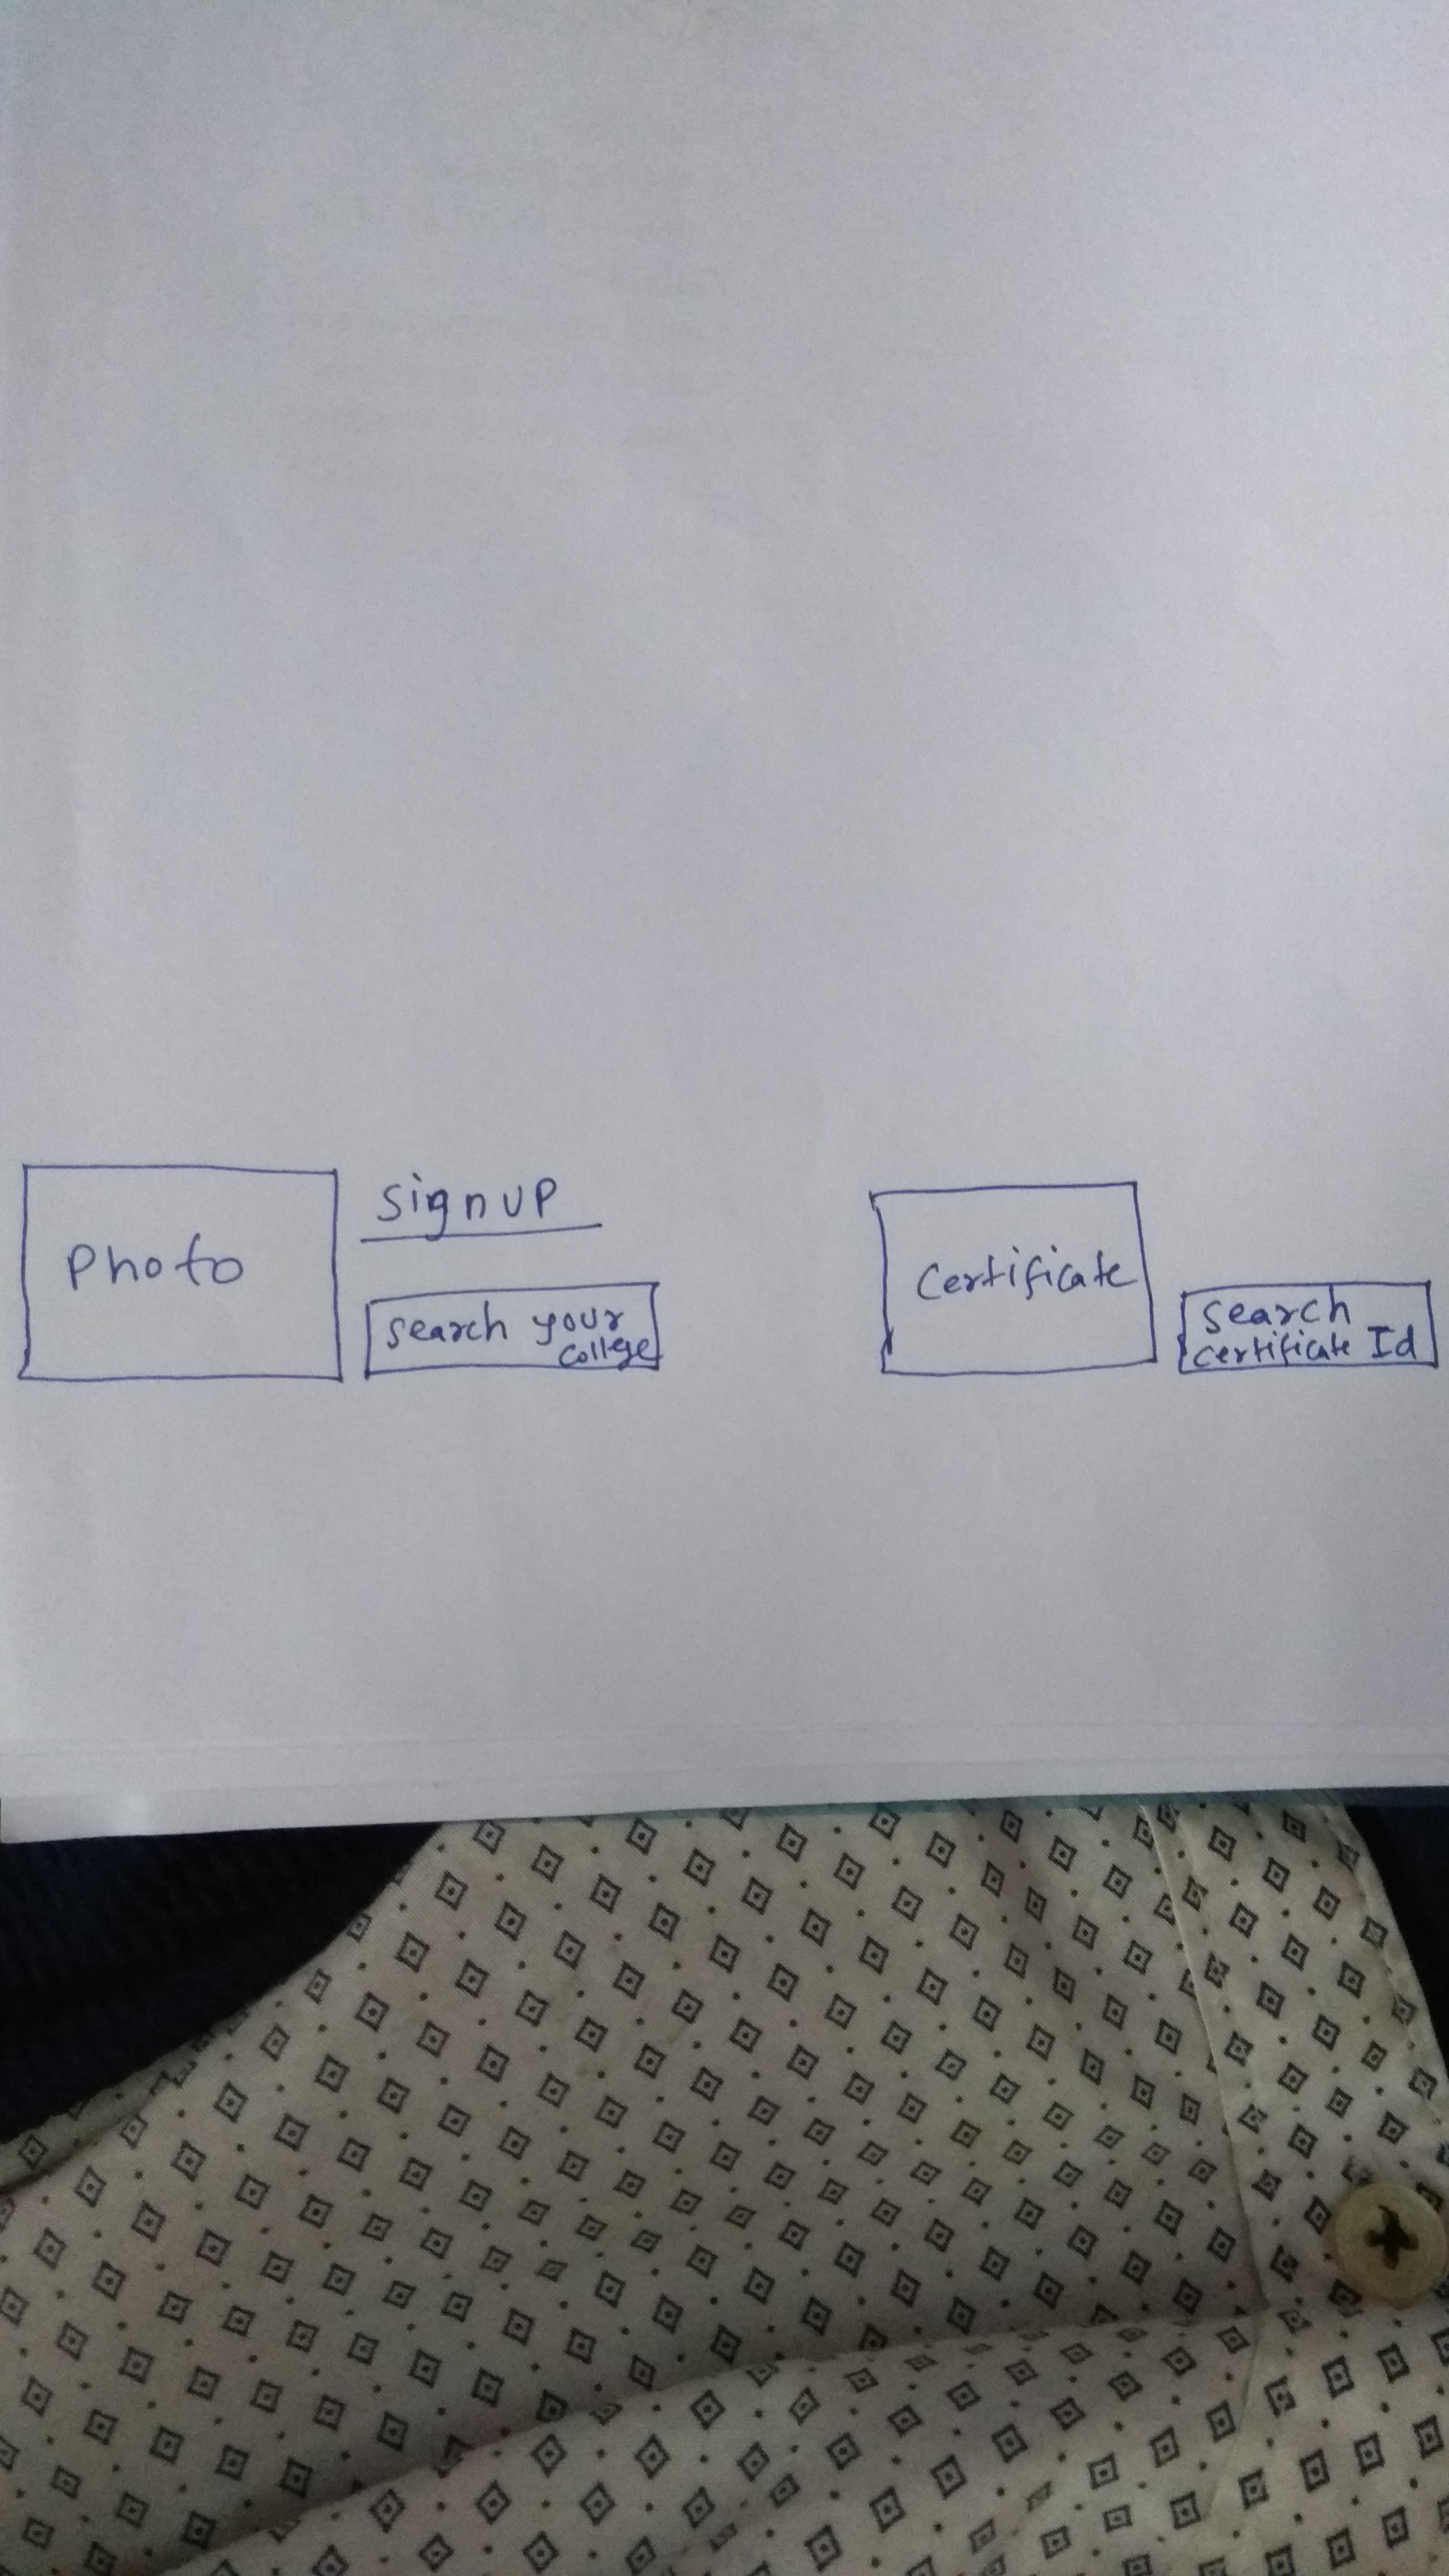 Photo
signup
search your
college
Certificate
search
certificate Id